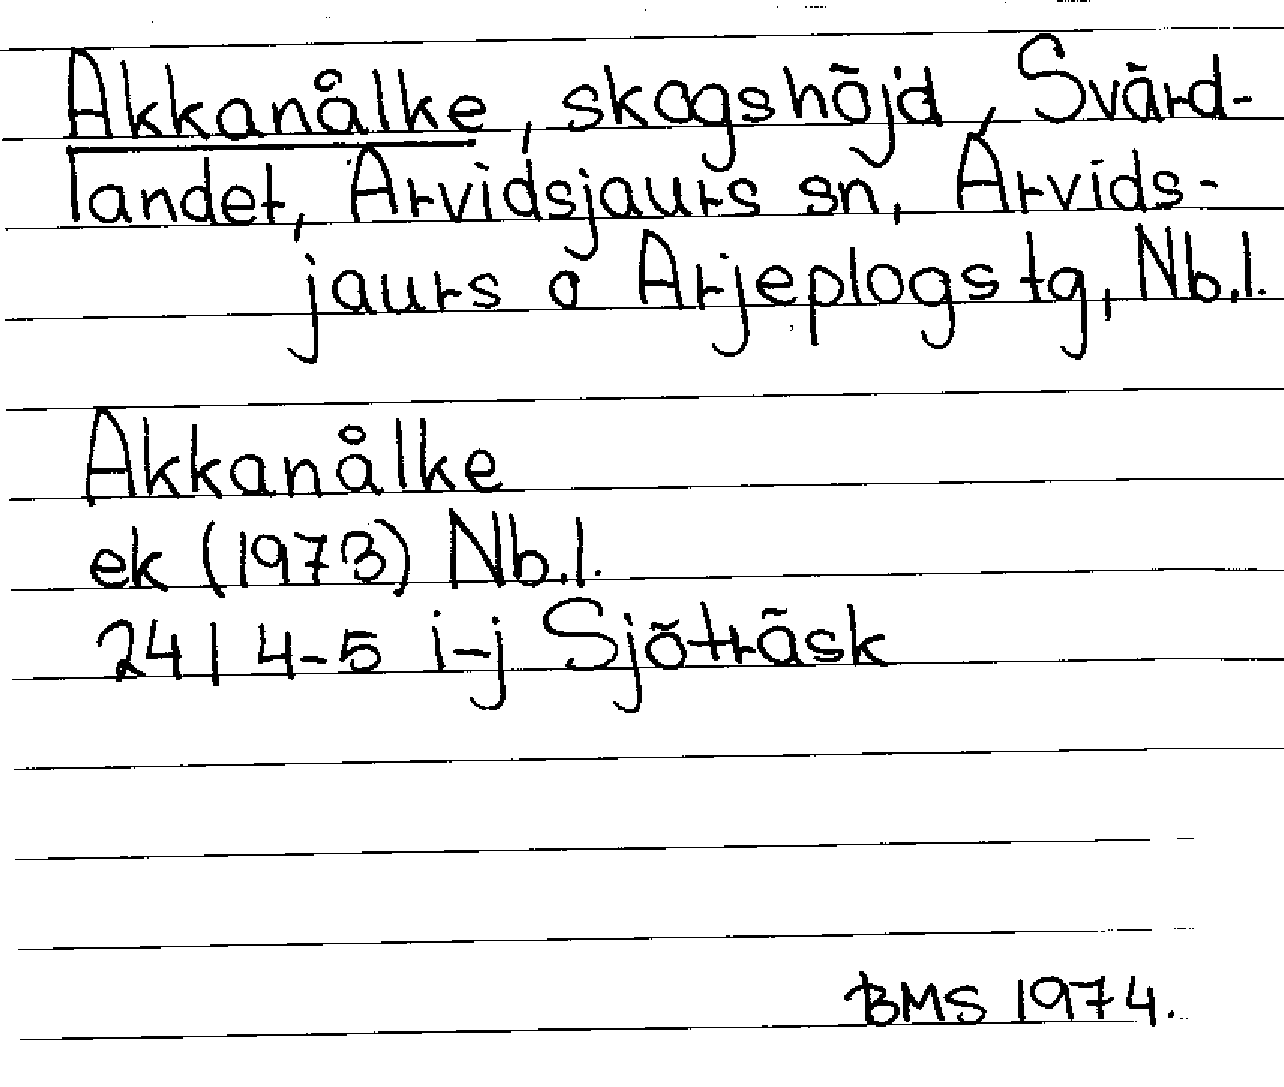 Akkanålke, skogshöjd, Svärd-
landet, Arvidsjaurs sn, Arvids-
jaurs o Arjeplogs tg, Nb.l.
Akkanålke
ek (1973) Nb.l.
24I 4-5 i-j Sjöträsk
BMS 1974.